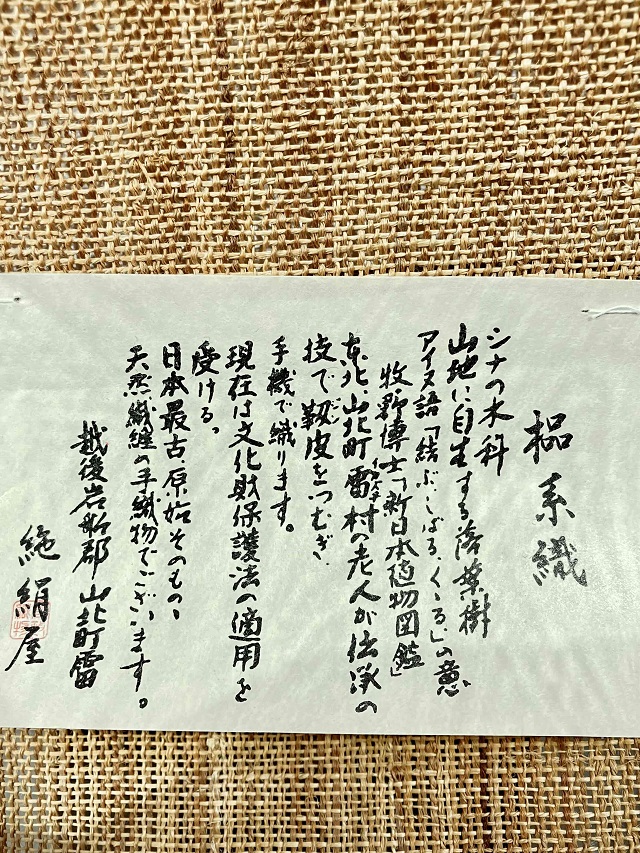 榀糸織
シナの木科
山地に自生する落葉樹
アイヌ語「結ぶ、しばる、くくる」の意
牧野博士「新日本植物図鑑」
東北、山北町雷村の老人が伝承の
技で靱皮をつむぎ、
手機で織ります。
現在は文化財保護法の適用を
受ける。
日本最古、原始そのもの、
天然繊維の手織物でございます。
越後岩船郡山北町雷
絁絹屋